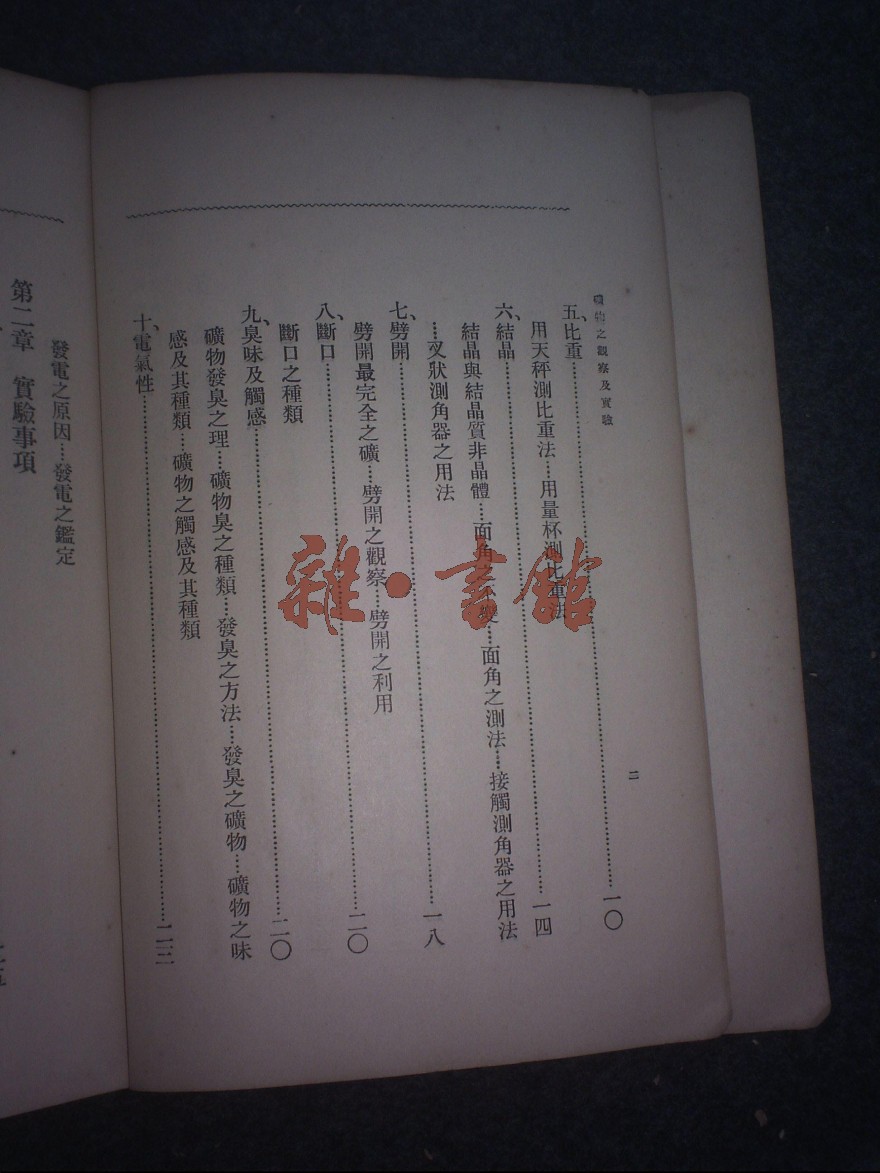 礦物之觀察及實驗
二
五、比重……一〇
用天秤測比重法…用量杯測比重法
六、結晶……一四
結晶與結晶質非晶體…面角之不變…面角之測法…接觸測角器之用法
…叉狀測角器之用法
七、劈開……一八
劈開最完全之礦…劈開之觀察…劈開之利用
八、斷口……二〇
斷口之種類
九、臭味及觸感……二〇
礦物發臭之理…礦物臭之種類…發臭之方法…發臭之礦物…礦物之味
感及其種類…礦物之觸感及其種類
十、電氣性……二三
發電之原因…發電之鑑定
第二章 實驗事項
雜·書館